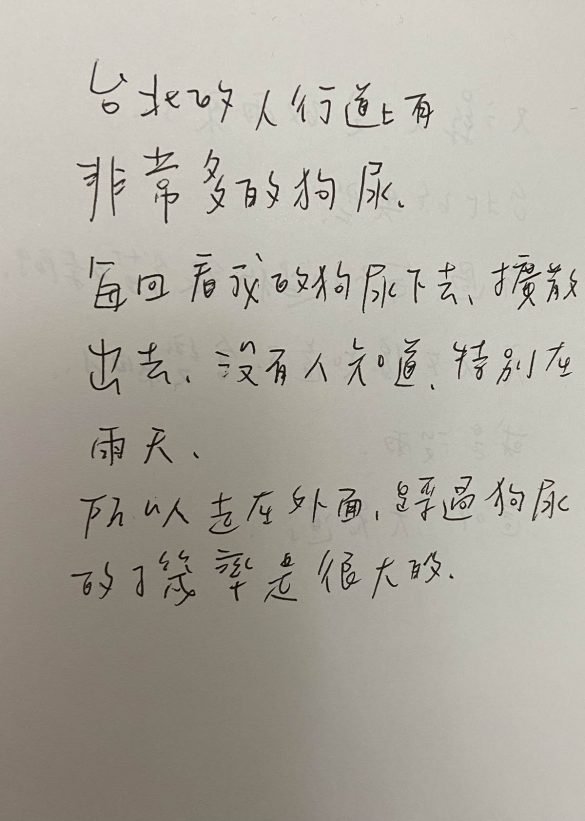 台北的人行道上有
非常多的狗尿.
每回看我的狗尿下去、擴散
出去、沒有人知道、特別在
雨天、
所以人走在外面,踩過狗尿
的機率是很大的.